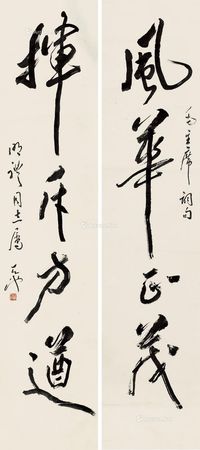 毛主席詞句
風華正茂
揮斥方遒
同志屬